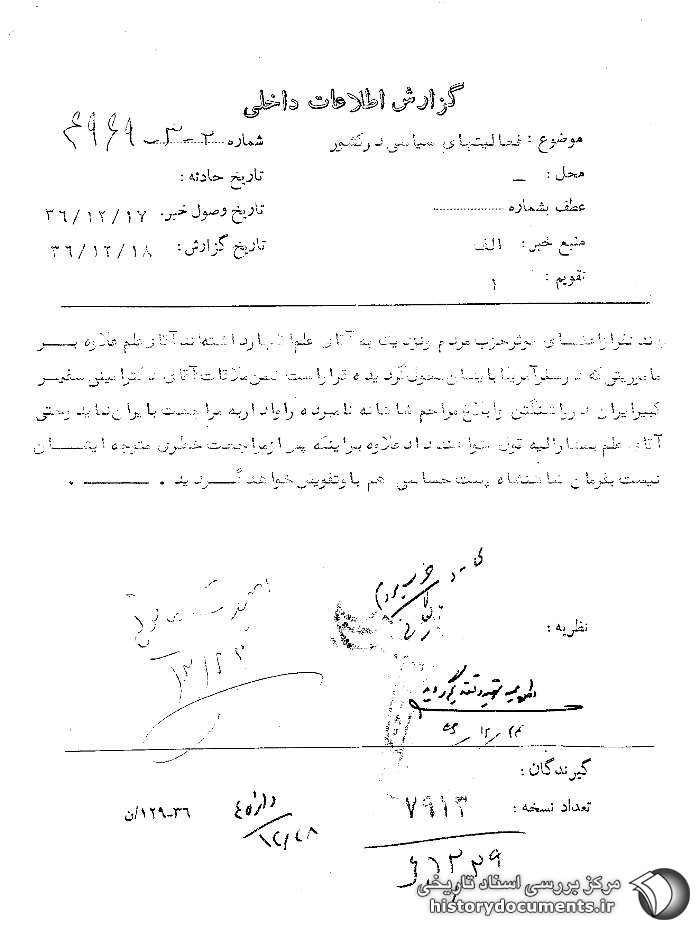 گزارش اطلاعات داخلی
موضوع : فعالیتهای سیاسی در کشور
شماره ۲-۳-
محل : -
تاریخ حادثه :
عطف بشماره
تاریخ وصول خبر. ۳۶/۱۲/۱۷
منبع خبر : الف
تاریخ گزارش : ۳۶/۱۲/۱۸
تقویم : ۱
چند نفر از اعضای موثر حزب مردم ونزدیک به آقای علم اظهارد اشته‌اند آقای علم علاوه بر
ماموریتی که در سفر آمریکا با یشان محول گردیده قرار است ضمن ملاقات آقای دکتر امینی سفیر
کبیر ایران در واشنگتن و ابلاغ مراحم شاهانه نامبرده را وادار به مراجعت با یران نماید وحتی
آقای علم بمشارالیه قول خواهند داد علاوه بر اینکه پس از مراجعت خطری متوجه ایشان
نیست بفرمان شاهنشاه پست حساسی هم با وتفویض خواهد گردید .
نظریه :
۱۲/۲۳
گیرندگان :
تعداد نسخه : ۷۹۱۳
۱۲/۲۸
۳۶-۱۲۹/ن
مرکز بررسی اسناد تاریخی
historydocuments.ir